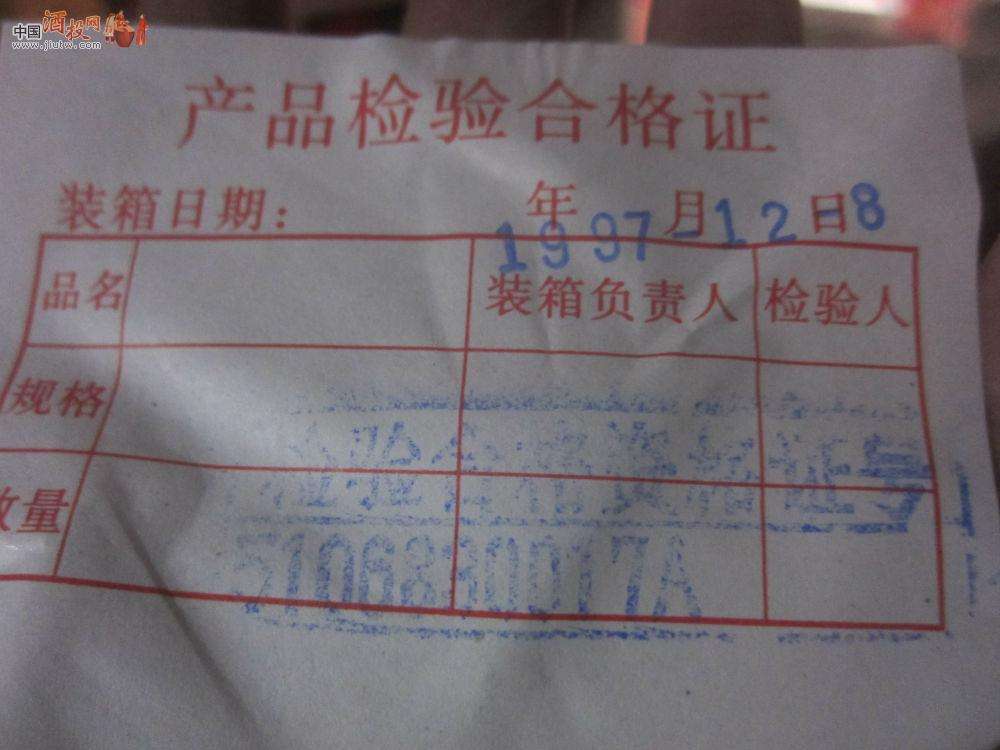 中国酒投网
www.jiutw.com
产品检验合格证
装箱日期： 年 月 日
1997-12-8
品名 装箱负责人 检验人
规格
数量
检验合格资格证号
5106830017A